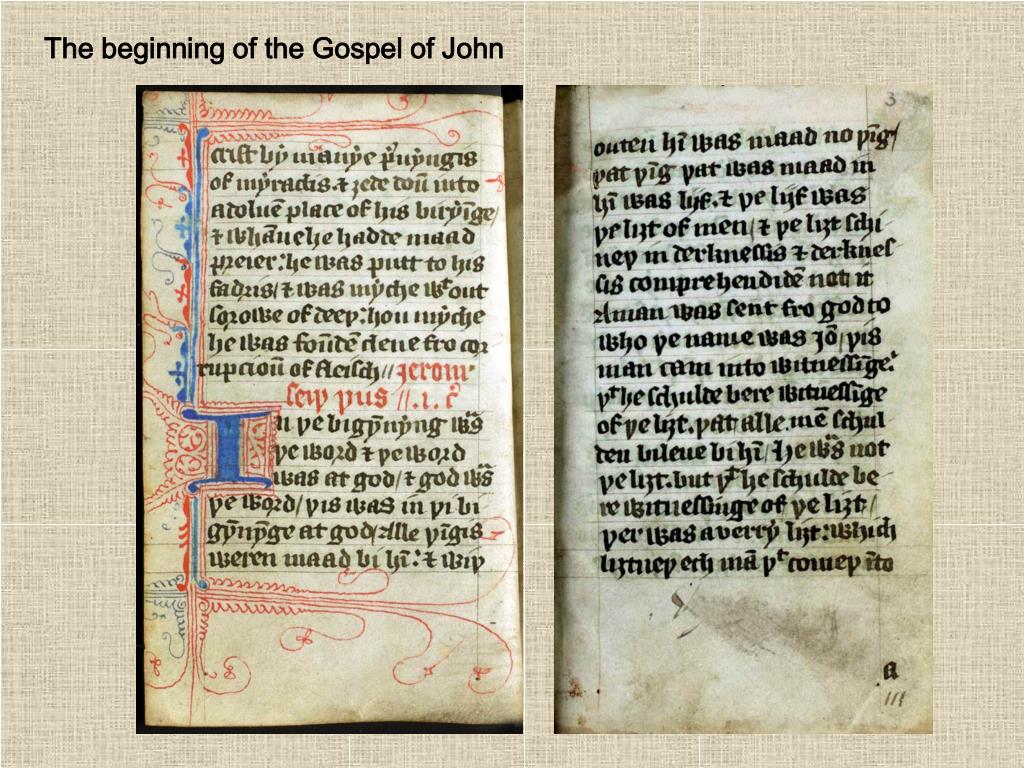 The beginning of the Gospel of John
crist bẏ manẏe p̃uẏngis
of mẏraclis. ⁊ ȝede doū into
a doluē place of his birẏīge/
⁊ whāne he hadde maad
preier: he was putt to his
fadris/ ⁊ was mẏche wᵗout
sorowe of deeþ: hou mẏche
he was foūdē clene fro cor
rupcioū of fleisch// Jerom
seiþ þus //.1. c̃
In þe bigẏn̄ẏng w̃s
þe word ⁊ þe word
was at god/ ⁊ god w̃s
þe word/ þis was in þi bi
gẏn̄ẏnge at god/ Alle þīgis
weren maad bi hī: ⁊ wiþ
3
outen hī was maad no þīg/
þat þīg þat was maad in
hī was lijf. ⁊ þe lijf was
þe liȝt of men/ ⁊ þe liȝt schi
neþ in derknessis ⁊ derknes
sis comprehendidē not it
A man was sent fro god to
who þe name was Jō/ þis
man cam into witnessīge:
þᵗ he schulde bere witnessīge
of þe liȝt. þat alle mē schul
den bileue bi hī/ He w̃s not
þe liȝt. but þᵗ he schulde be
re witnessinge of þe liȝt/
þer was a verrẏ liȝt: which
liȝtneþ ech mā þᵗ comeþ īto
a
III